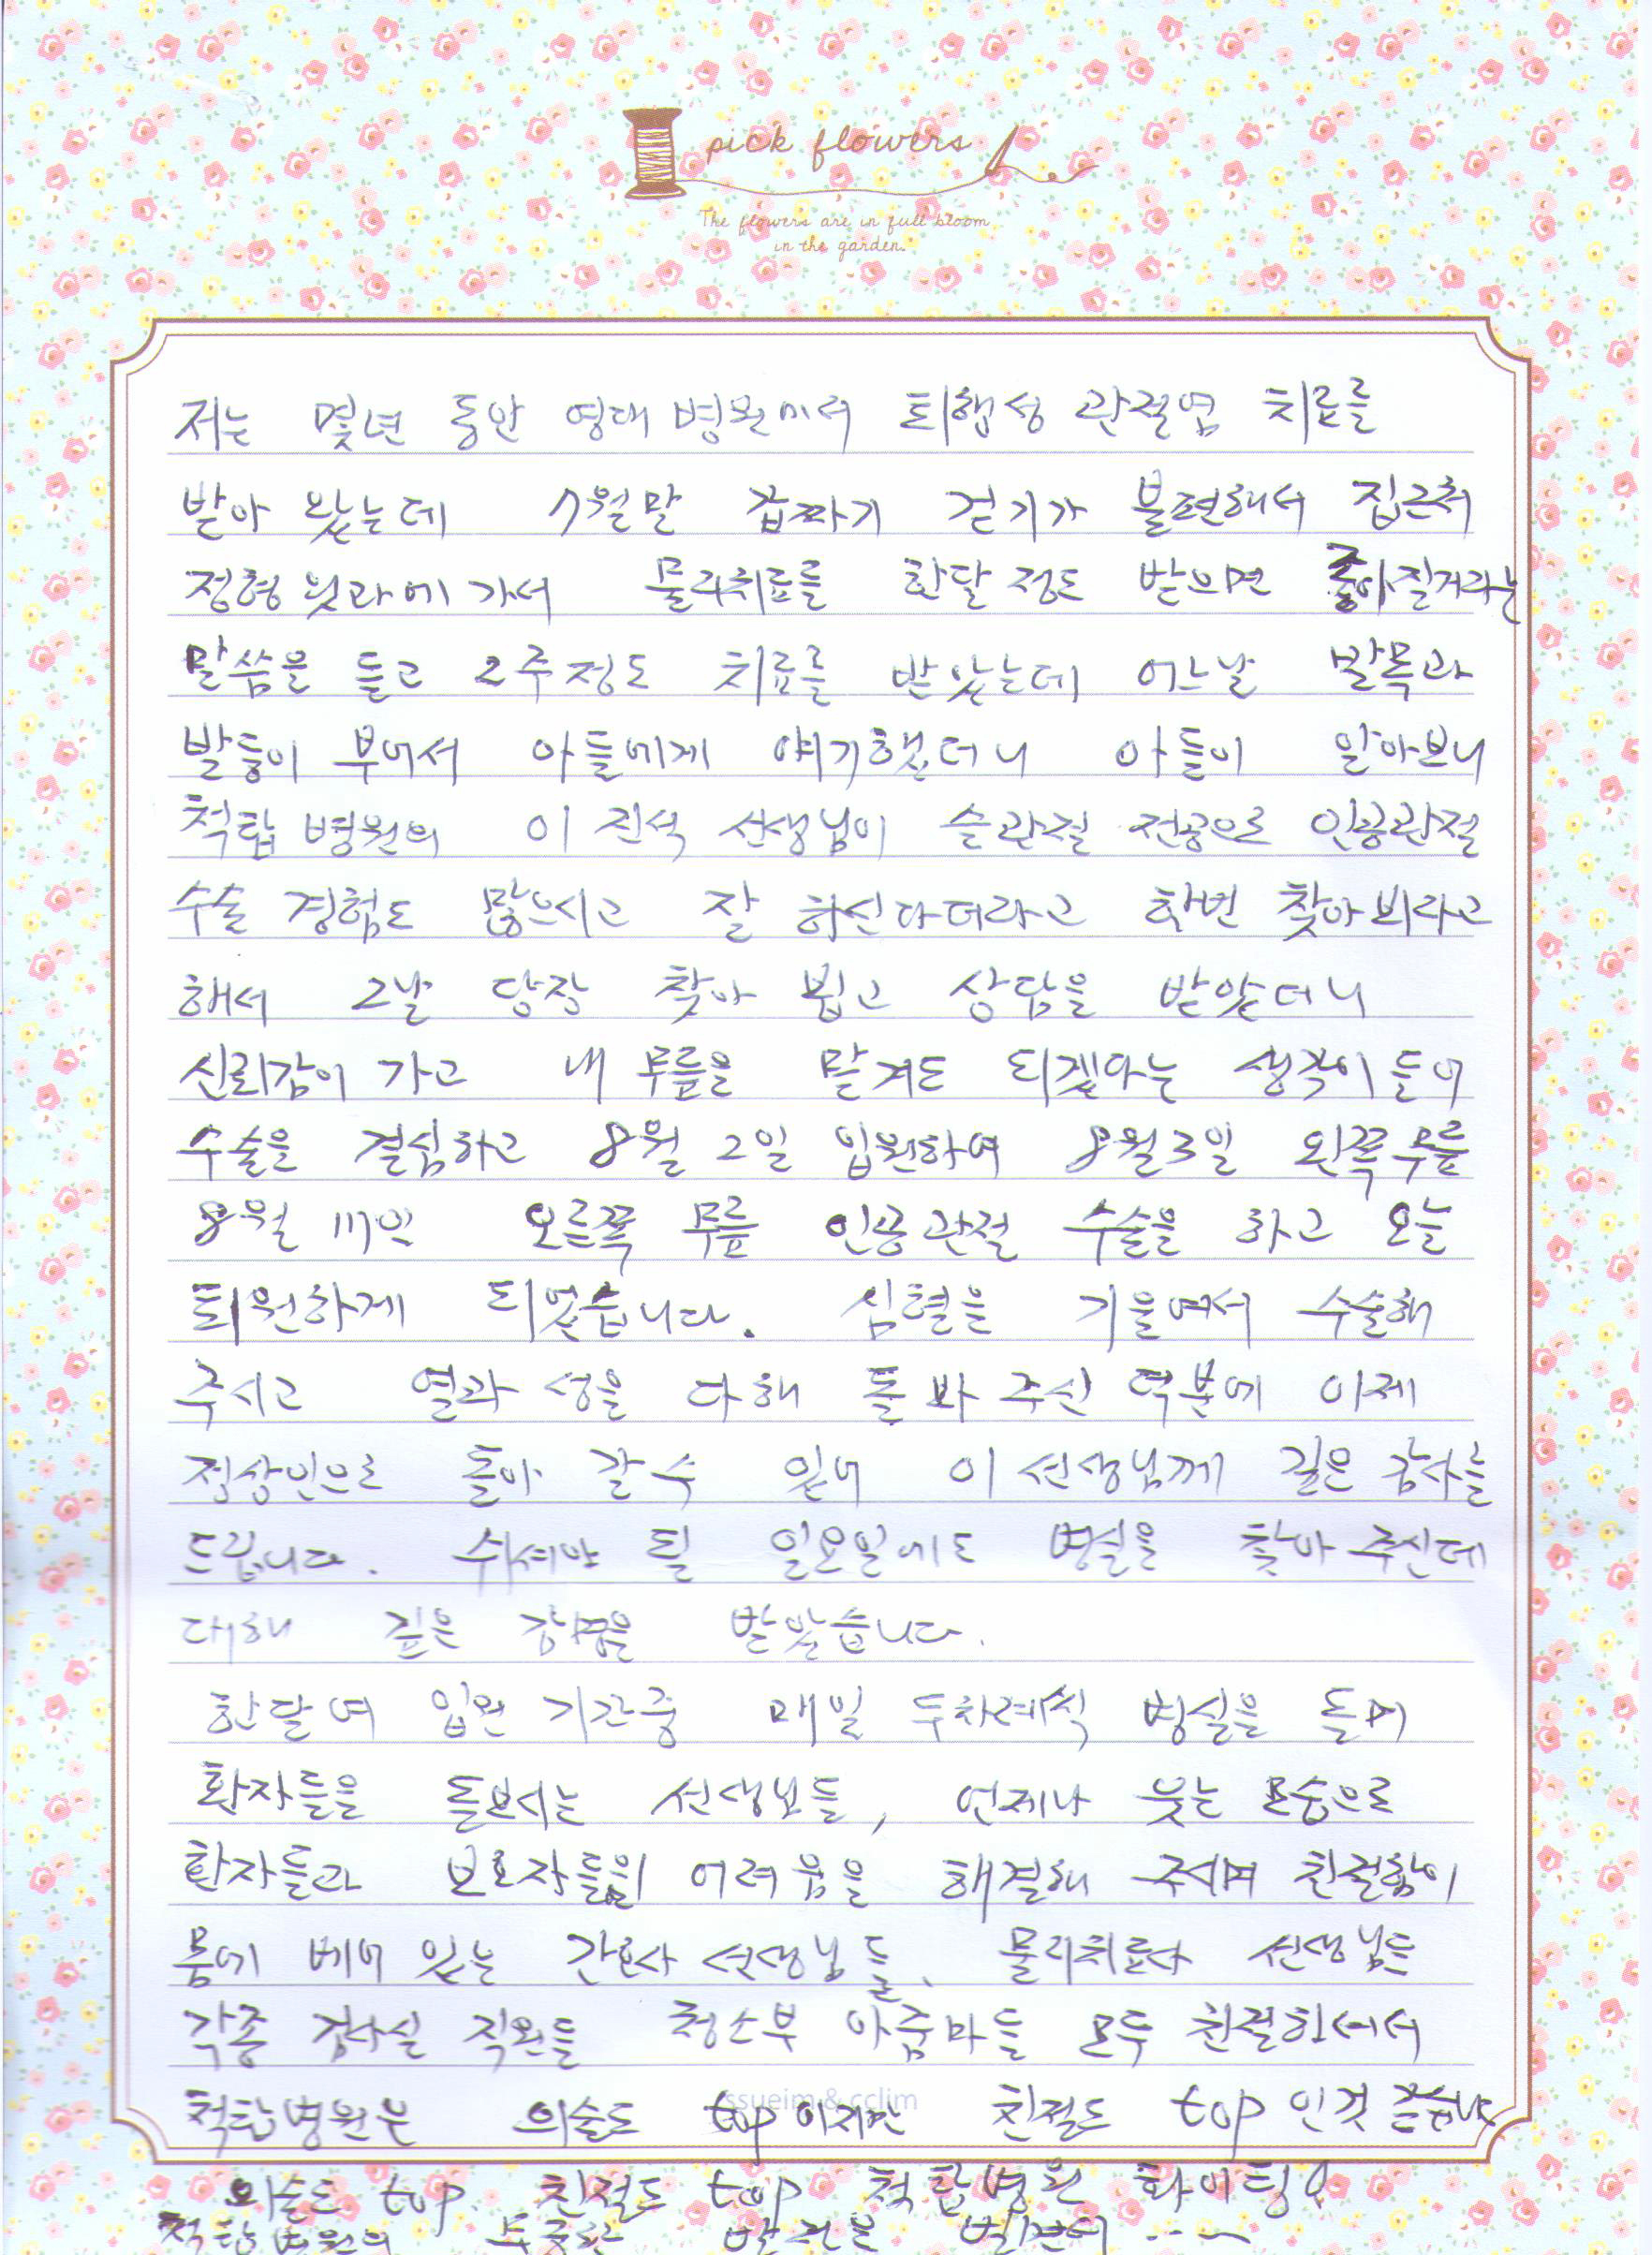 pick flowers
The flowers are in full bloom
in the garden.
저는 몇년 동안 영대 병원에서 퇴행성 관절염 치료를
받아 왔는데 7월말 갑짜기 걷기가 불편해서 집근처
정형 욋과에 가서 물리취료를 한달 정도 받으면 좋아질거라는
말씀을 듣고 2주정도 치료를 받았는데 어느날 발목과
발등이 부어서 아들에게 얘기했더니 아들이 알아보니
척탑 병원의 이진석 선생님이 슬관절 전공으로 인공관절
수술 경험도 많으시고 잘 하신다더라고 한번 찾아 뵈라고
해서 그날 당장 찾아 뵙고 상담을 받았더니
신뢰감이 가고 내 무릎을 맡겨도 되겠다는 생각이 들어
수술을 결심하고 8월 2일 입원하여 8월3일 왼쪽무릎
8월 17일 오른쪽 무릎 인공관절 수술을 하고 오늘
퇴원하게 되었습니다. 심혈을 기울여서 수술해
주시고 열과 성을 다해 돌봐 주신 덕분에 이제
정상인으로 돌아 갈 수 있어 이 선생님께 깊은 감사를
드립니다. 쉬셔야 될 일요일에도 병실을 찾아 주신데
대해 깊은 감명을 받았습니다.
한달여 입원 기간중 매일 두차례씩 병실을 돌며
환자들을 돌보시는 선생님들, 언제나 웃는 모습으로
환자들과 보호자들의 어려움을 해결해 주시며 친절함이
몸에 베어 있는 간호사 선생님들, 물리취료사 선생님들
각종 검사실 직원들 청소부 아줌마들 모두 친절하셔서
척탑병원은 의술도 top이지만 친절도 top 인것 같습니다
ssueim & cclim
의술도 top 친절도 top 척탑병원 화이팅!
척탑병원의 무궁한 발전을